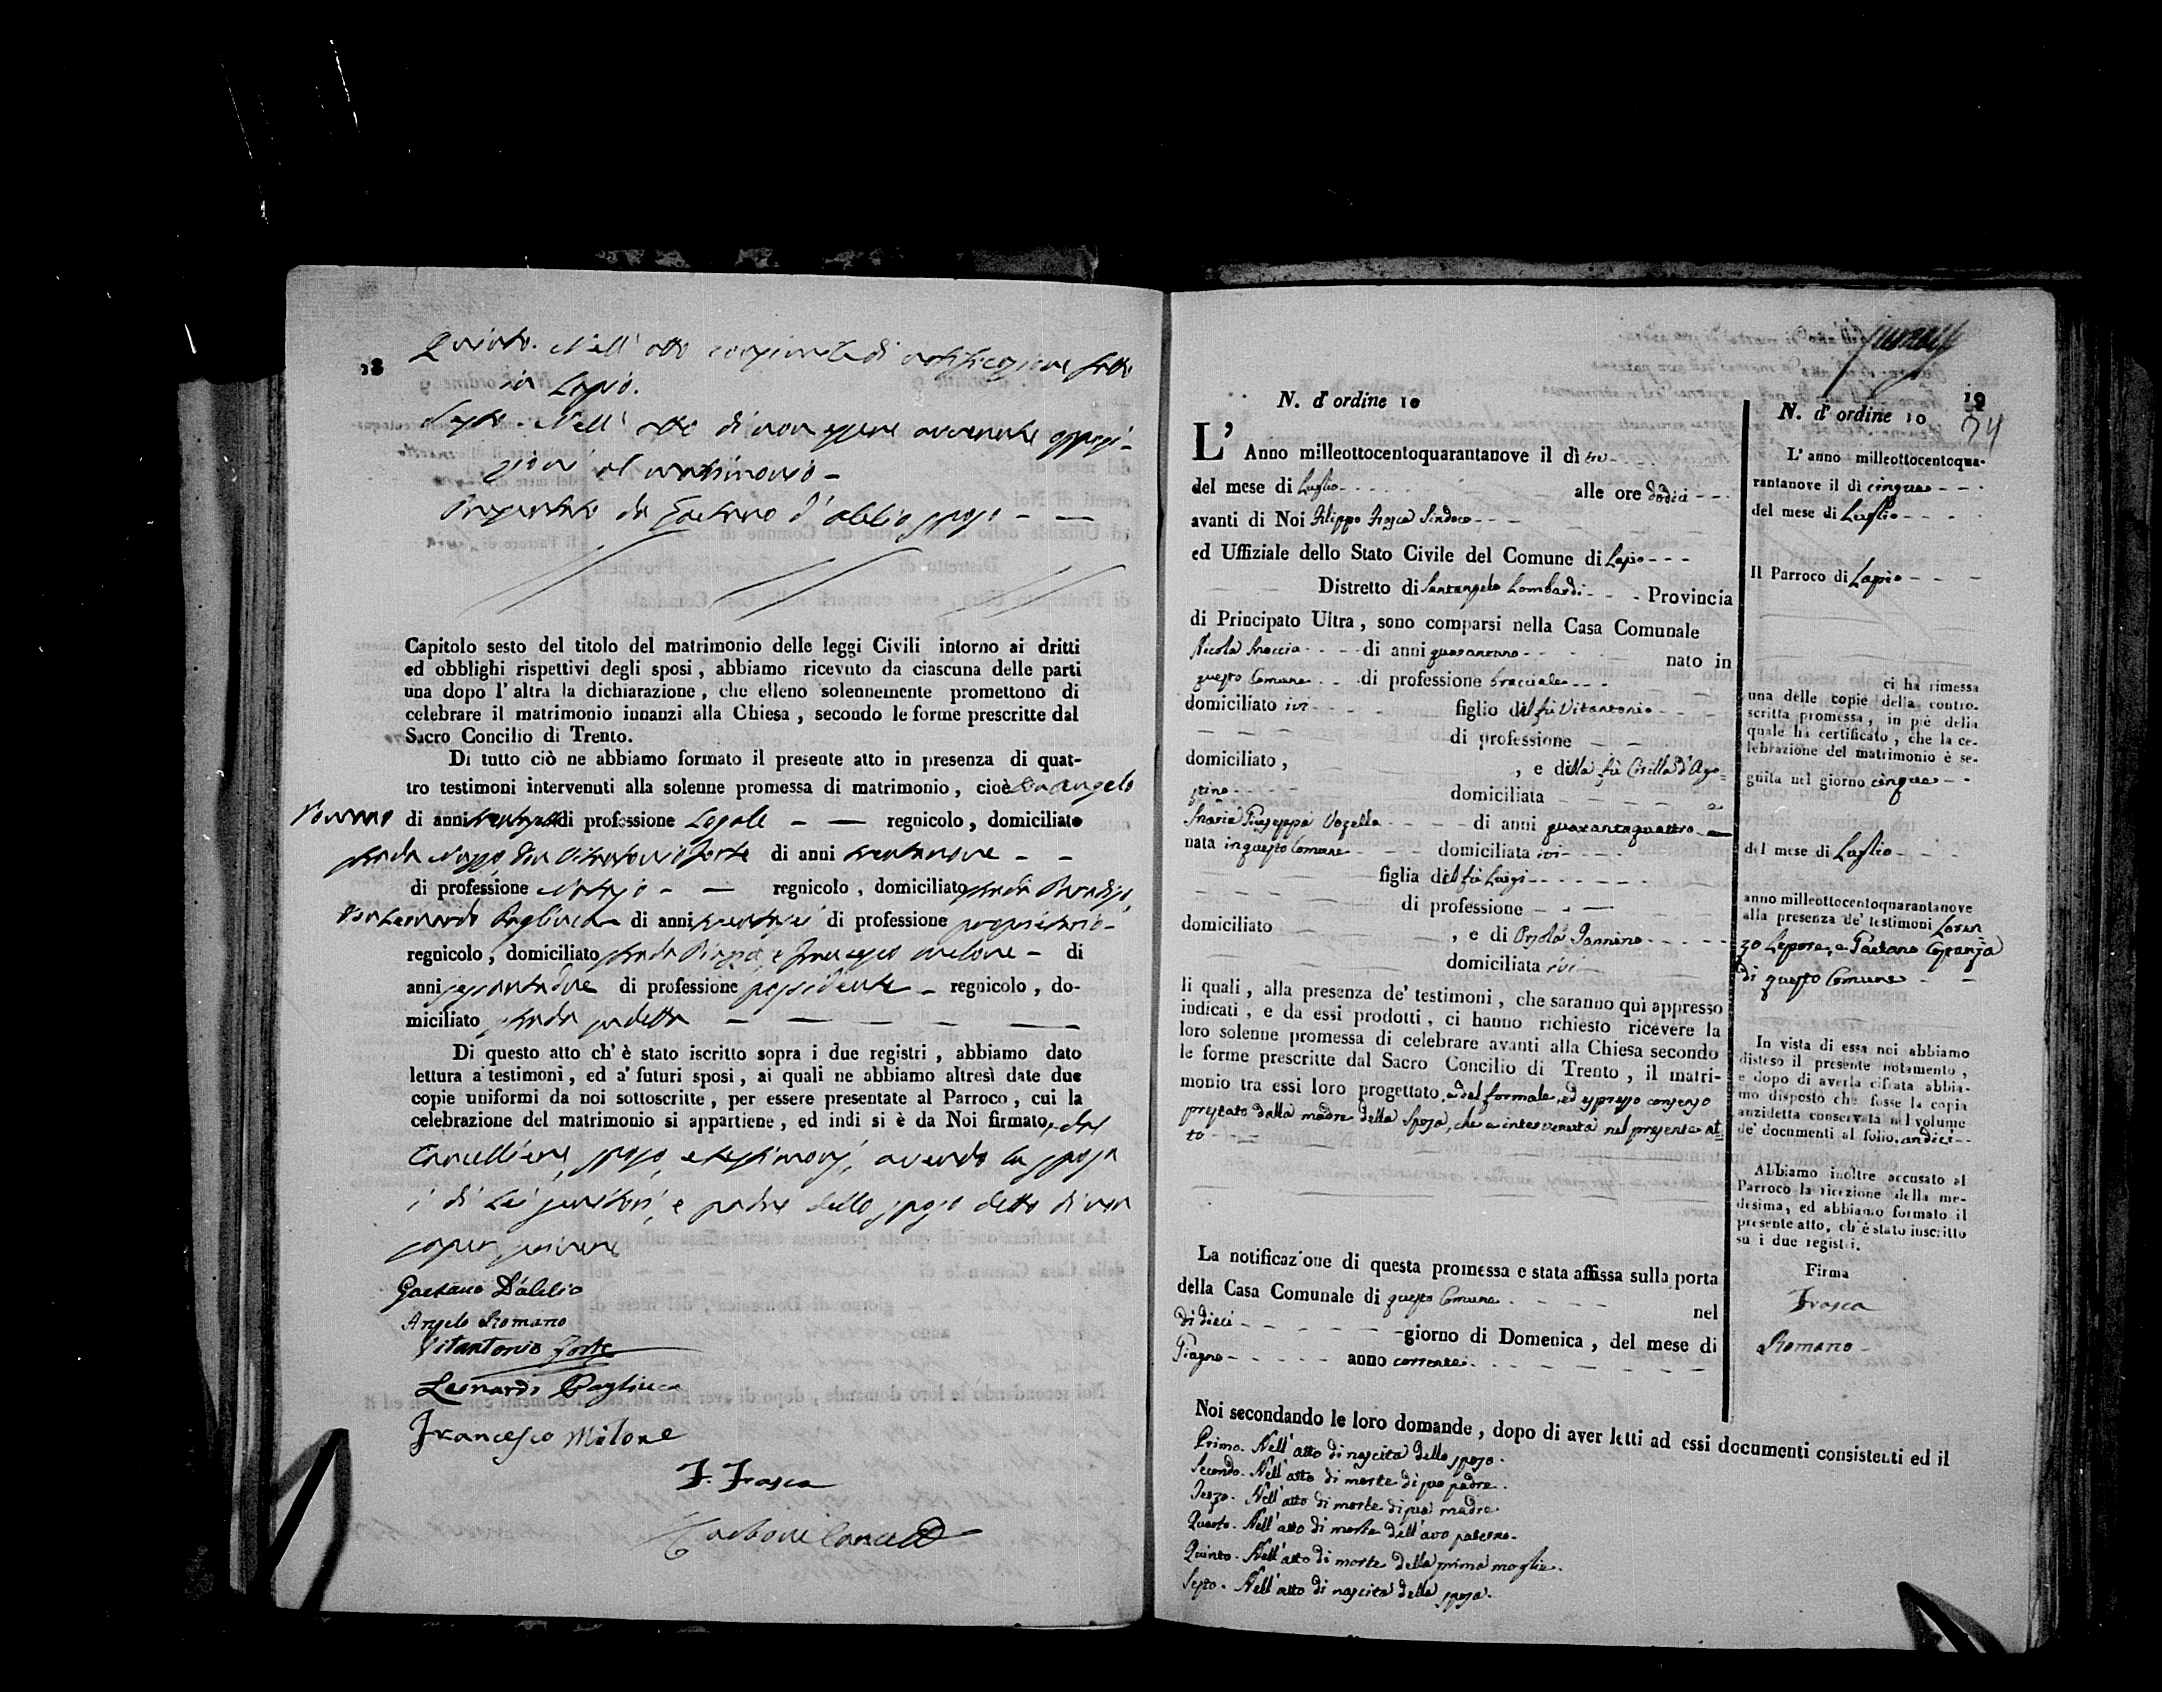 18
Quinto. Nell' atto di notificazione fatta
in Lapio.
Sesto. Nell' atto di non essere avvenute opposi-
zioni al matrimonio -
Presentate da Gaetano d'Alelio sposo - —
Capitolo sesto del titolo del matrimonio delle leggi Civili intorno ai dritti
ed obblighi rispettivi degli sposi, abbiamo ricevuto da ciascuna delle parti
una dopo l'altra la dichiarazione, che elleno solennemente promettono di
celebrare il matrimonio innanzi alla Chiesa, secondo le forme prescritte dal
Sacro Concilio di Trento.
Di tutto ciò ne abbiamo formato il presente atto in presenza di quat-
tro testimoni intervenuti alla solenne promessa di matrimonio, cioè Don Angelo
Romano di anni di professione Legale - — regnicolo, domiciliato
strada Don Vitantonio Forte di anni trentanove - -
di professione Notajo - — regnicolo, domiciliato strada
Don Leonardo Pagliuca di anni di professione proprietario -
regnicolo, domiciliato strada Piazza, e Francesco Milone - di
anni sessantadue di professione possidente - regnicolo, do-
miciliato strada sudetta — — — — —
Di questo atto ch' è stato iscritto sopra i due registri, abbiamo dato
lettura a' testimoni, ed a' futuri sposi, ai quali ne abbiamo altresì date due
copie uniformi da noi sottoscritte, per essere presentate al Parroco, cui la
celebrazione del matrimonio si appartiene, ed indi si è da Noi firmato, dal
Cancelliere, sposo, e testimonj, avendo la sposa
i di Lei genitori, e padre dello sposo detto di non
saper scrivere
Gaetano D'alelio
Angelo Romano
Vitantonio Forte
Leonardo Pagliuca
Francesco Milone
F. Frasca
19
34
N. d' ordine 10
L' Anno milleottocentoquarantanove il dì tre
del mese di Luglio alle ore dodici
avanti di Noi Filippo Frasca Sindaco
ed Uffiziale dello Stato Civile del Comune di Lapio
Distretto di Santangelo Lombardi Provincia
di Principato Ultra, sono comparsi nella Casa Comunale
Nicola di anni quarantuno nato in
questo Comune di professione bracciale
domiciliato ivi figlio del fù Vitantonio
di professione
domiciliato, , e della fù Cirilla d'Ago-
stino domiciliata e
Maria Giuseppa Vozella di anni quarantaquattro
nata in questo Comune domiciliata ivi
figlia del fù Luigi
di professione
domiciliato , e di Orsola Iannino
domiciliata ivi
li quali, alla presenza de' testimoni, che saranno qui appresso
indicati, e da essi prodotti, ci hanno richiesto ricevere la
loro solenne promessa di celebrare avanti alla Chiesa secondo
le forme prescritte dal Sacro Concilio di Trento, il matri-
monio tra essi loro progettato, e del formale, ed espresso consenzo
prestato dalla madre della Sposa, che è intervenuta nel presente at-
to
La notificazione di questa promessa è stata affissa sulla porta
della Casa Comunale di questo Comune nel
di dieci giorno di Domenica, del mese di
Giugno anno corrente
Noi secondando le loro domande, dopo di aver letti ad essi documenti consistenti ed il
Primo. Nell' atto di nascita dello sposo.
Secondo. Nell' atto di morte di suo padre.
Terzo. Nell' atto di morte di sua madre.
Quarto. Nell' atto di morte dell' avo paterno.
Quinto. Nell' atto di morte della prima moglie.
Sesto. Nell' atto di nascita della sposa.
N. d' ordine 10
L' anno milleottocentoqua-
rantanove il dì cinque
del mese di Luglio
Il Parroco di Lapio
ci ha rimessa
una delle copie della contro-
scritta promessa, in piè della
quale ha certificato, che la ce-
lebrazione del matrimonio è se-
guita nel giorno cinque
del mese di Luglio
anno milleottocentoquarantanove
alla presenza de' testimoni Loren
zo Lepore, e Gaetano
di questo Comune
In vista di essa noi abbiamo
disteso il presente notamento,
e dopo di averla cifrata abbia-
mo disposto che fosse la copia
anzidetta conservata nel volume
de' documenti al folio undici
Abbiamo inoltre accusato al
Parroco la ricezione della me-
desima, ed abbiamo formato il
presente atto, ch' è stato inscritto
su i due registri.
Firma
Frasca
Romano